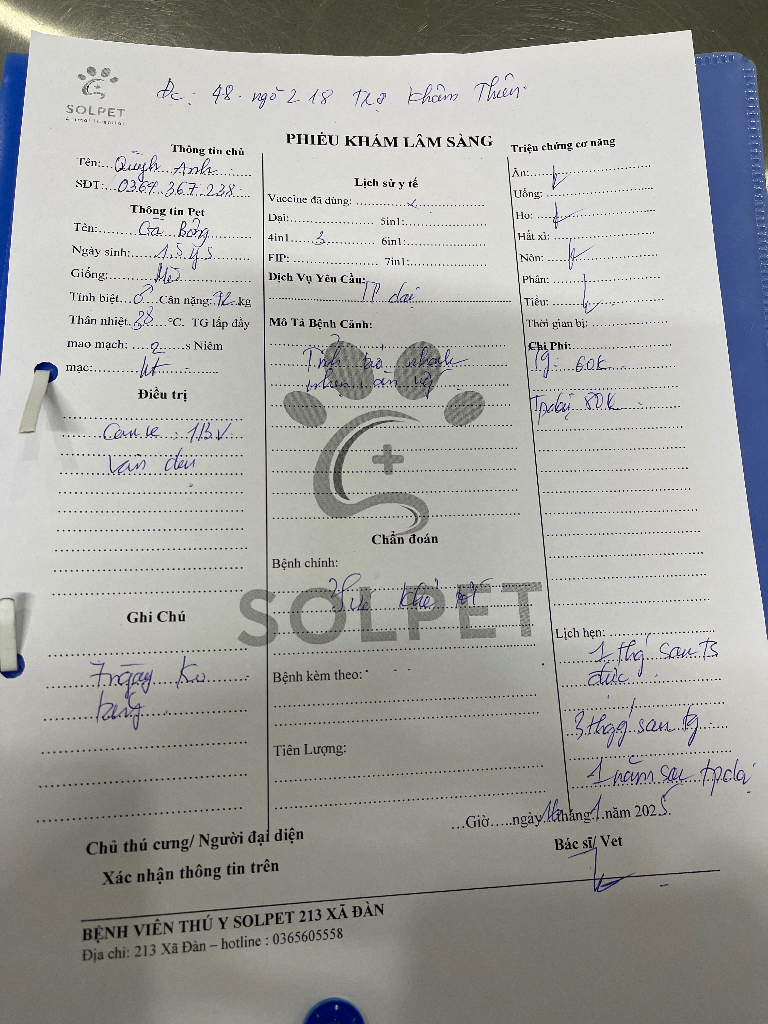 SOLPET
Animal Hospital
Đc: 48. ngõ 218 Chợ Khâm Thiên
PHIẾU KHÁM LÂM SÀNG
Thông tin chủ
Tên: Quỳnh Anh
SĐT: 0364.367.238
Thông tin Pet
Tên: Bông
Ngày sinh: 1,5 y s
Giống: Mèo
Tính biệt Cân nặng: kg
Thân nhiệt 38 °C. TG lấp đầy
mao mạch: 2 s Niêm
mạc:
Điều trị
1BV
Ghi Chú
7 ngày ko
tắm
Lịch sử y tế
Vaccine đã dùng:
Dại: 5in1:
4in1 3 6in1:
FIP: 7in1:
Dịch Vụ Yêu Cầu:
TP dại
Mô Tả Bệnh Cảnh:
nhanh
SOLPET
Chẩn đoán
Bệnh chính:
Sức khỏe tốt
Bệnh kèm theo:
Tiên Lượng:
Triệu chứng cơ năng
Ăn:
Uống:
Ho:
Hắt xì:
Nôn:
Phân:
Tiểu:
Thời gian bị:
Chi Phí:
Tg: 60K
Tpdại 80K
Lịch hẹn:
1 thg sau ts
đực
3 thg sau tg
1 năm sau tpdại
...Giờ.....ngày tháng 1 năm 2025
Chủ thú cưng/ Người đại diện
Xác nhận thông tin trên
Bác sĩ/ Vet
BỆNH VIỆN THÚ Y SOLPET 213 XÃ ĐÀN
Địa chỉ: 213 Xã Đàn – hotline : 0365605558